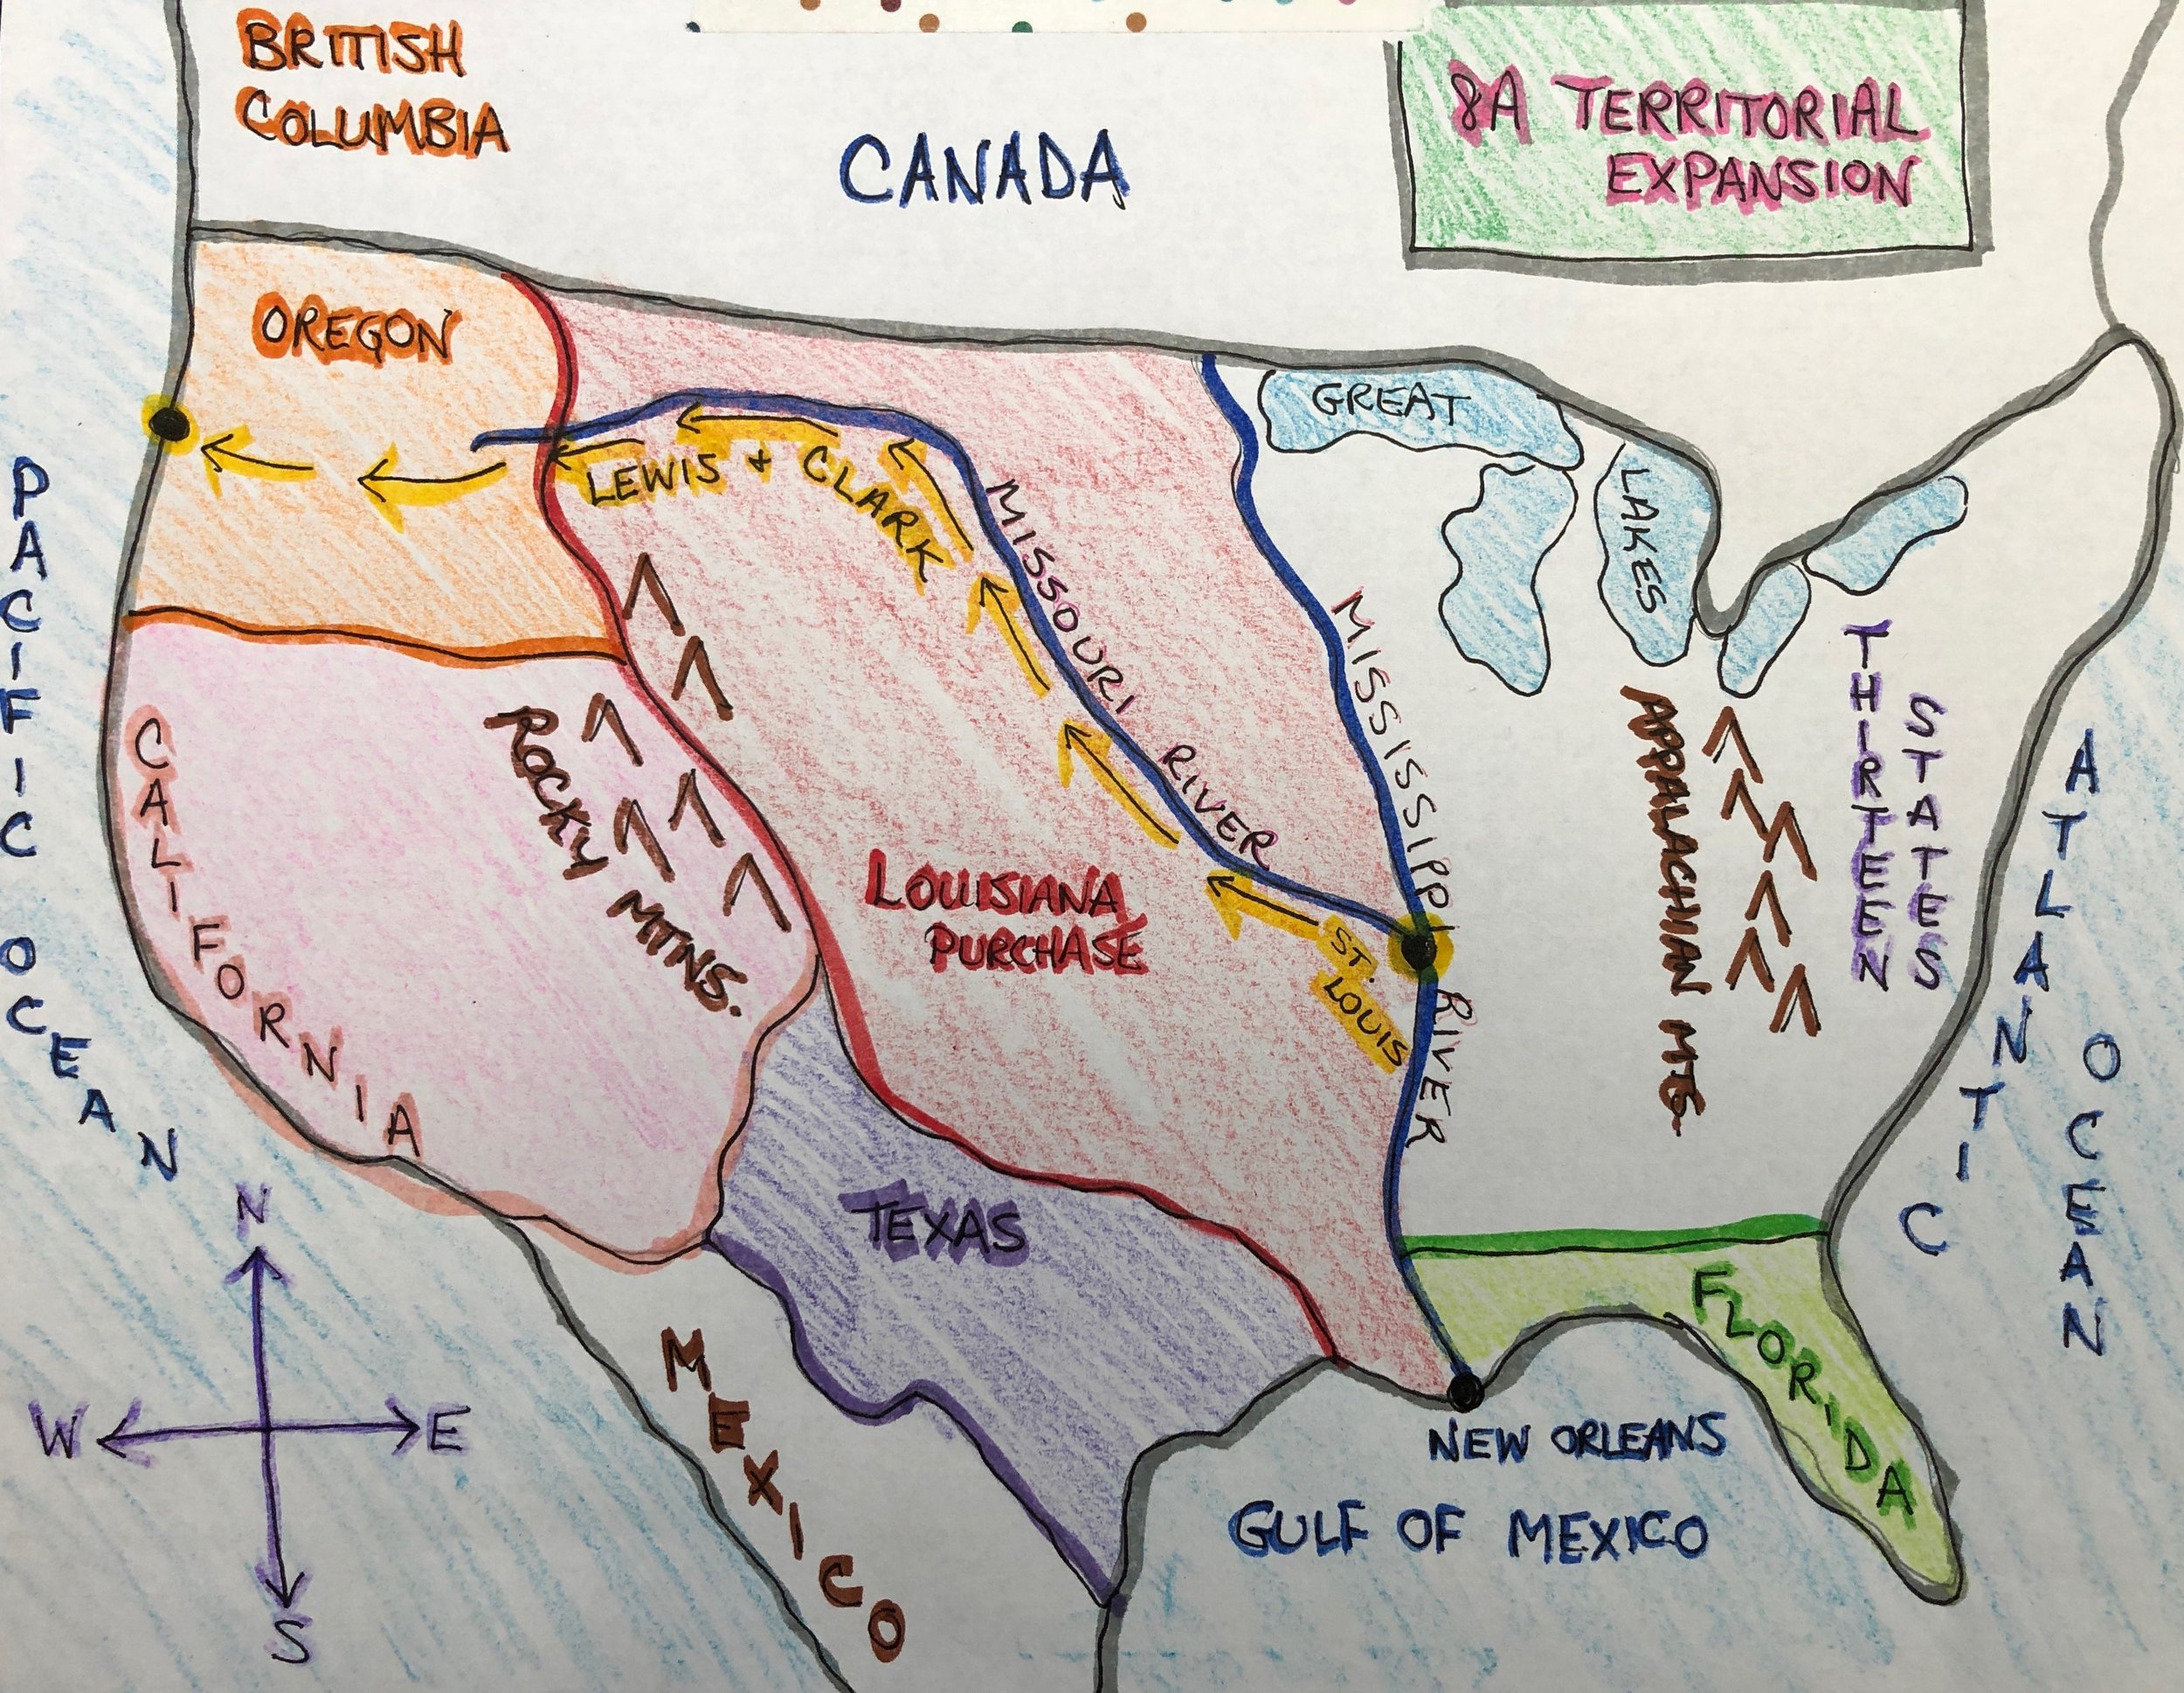 BRITISH
COLUMBIA
CANADA
8A TERRITORIAL
EXPANSION
OREGON
GREAT
LAKES
LEWIS + CLARK
MISSOURI RIVER
MISSISSIPPI RIVER
PACIFIC OCEAN
CALIFORNIA
ROCKY MTNS.
LOUISIANA
PURCHASE
ST.
LOUIS
APPALACHIAN MTS.
THIRTEEN
STATES
ATLANTIC
OCEAN
TEXAS
FLORIDA
MEXICO
NEW ORLEANS
GULF OF MEXICO
N
W
E
S